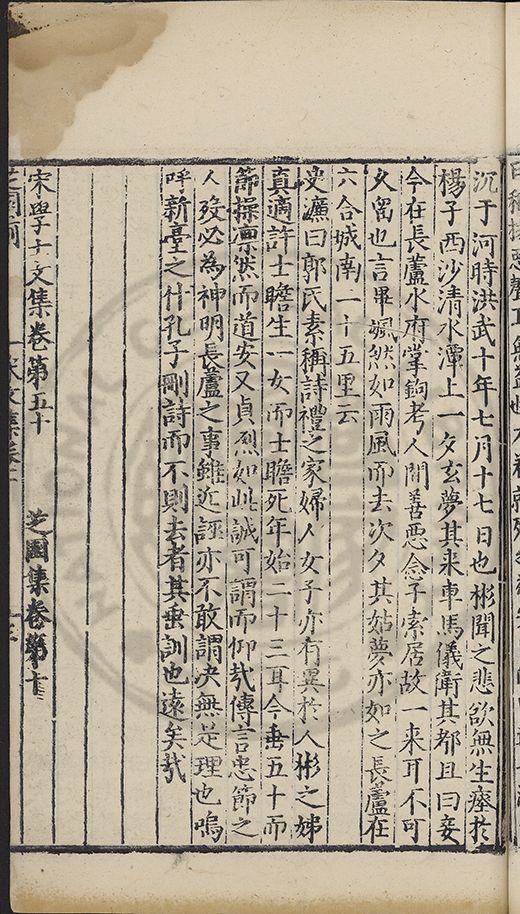 沉于河時洪武十年七月十七日也彬聞之悲欲無生瘞於
楊子西沙清水潭上一夕玄夢其来車馬儀衛甚都且曰妾
今在長蘆水府掌鈎考人間善惡念子索居故一来耳不可
久留也言畢颯然如雨風而去次夕其姑夢亦如之長蘆在
六合城南一十五里云
史濂曰郭氏素稱詩禮之家婦人女子亦有異於人彬之姊
真適許士瞻生一女而士瞻死年始二十三耳今垂五十而
節操凛然而道安又貞烈如此誠可謂而仰㢤傳言忠節之
人歿必為神明長蘆之事雖近誣亦不敢謂决無是理也嗚
呼新臺之什孔子刪詩而不則去者其垂訓也遠矣㢤
宋學士文集卷第五十 芝園集卷第十